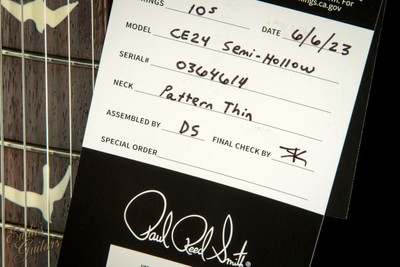 ings.ca.gov
INGS 10s DATE 6/6/23
MODEL CE24 Semi-Hollow
SERIAL# 0364614
NECK Pattern Thin
ASSEMBLED BY DS FINAL CHECK BY
SPECIAL ORDER
Paul Reed Smith ®
Guitars